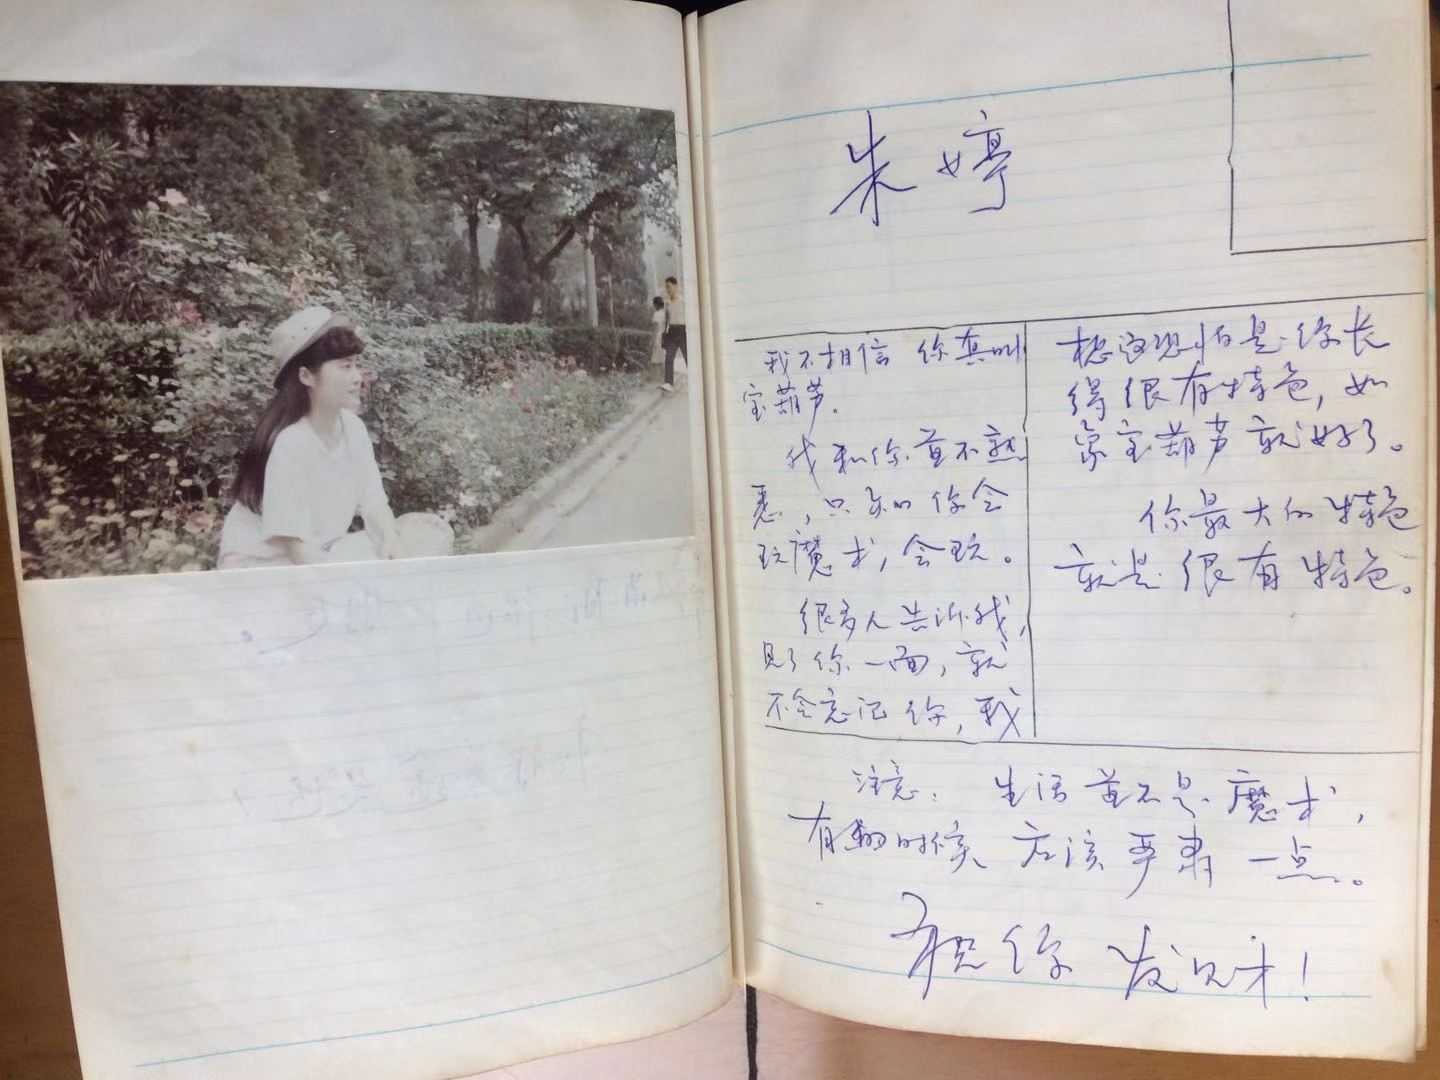 朱婷
我不相信 你真叫
宝葫芦。
我和你并不熟
悉，只知你会
玩魔术，会玩。
很多人告诉我，
见了你一面，就
不会忘记你，我
想这恐怕是你长
得很有特色，如
象宝葫芦就好了。
你最大的特色
就是很有特色。
注意：生活并不是魔术，
有的时候应该严肃一点。
祝你发财！